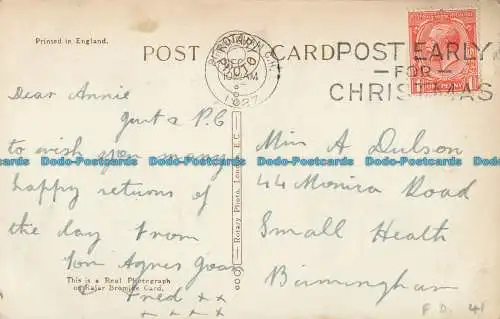 Printed in England.
POST CARD
POST EARLY
— FOR —
CHRISTMAS
Dear Annie
Just a P.C
to wish you many
happy returns of
the day from
Tom Agnes
Fred x x
x x
This is a Real Photograph
on Kajar Bromide Card.
Rotary Photo, London, E.C.
Miss A Dulson
44 Monica Road
Small Heath
Birmingham
F D. 41
Dodo-Postcards Dodo-Postcards Dodo-Postcards Dodo-Postcards Dodo-Postcards Dodo-Postcards